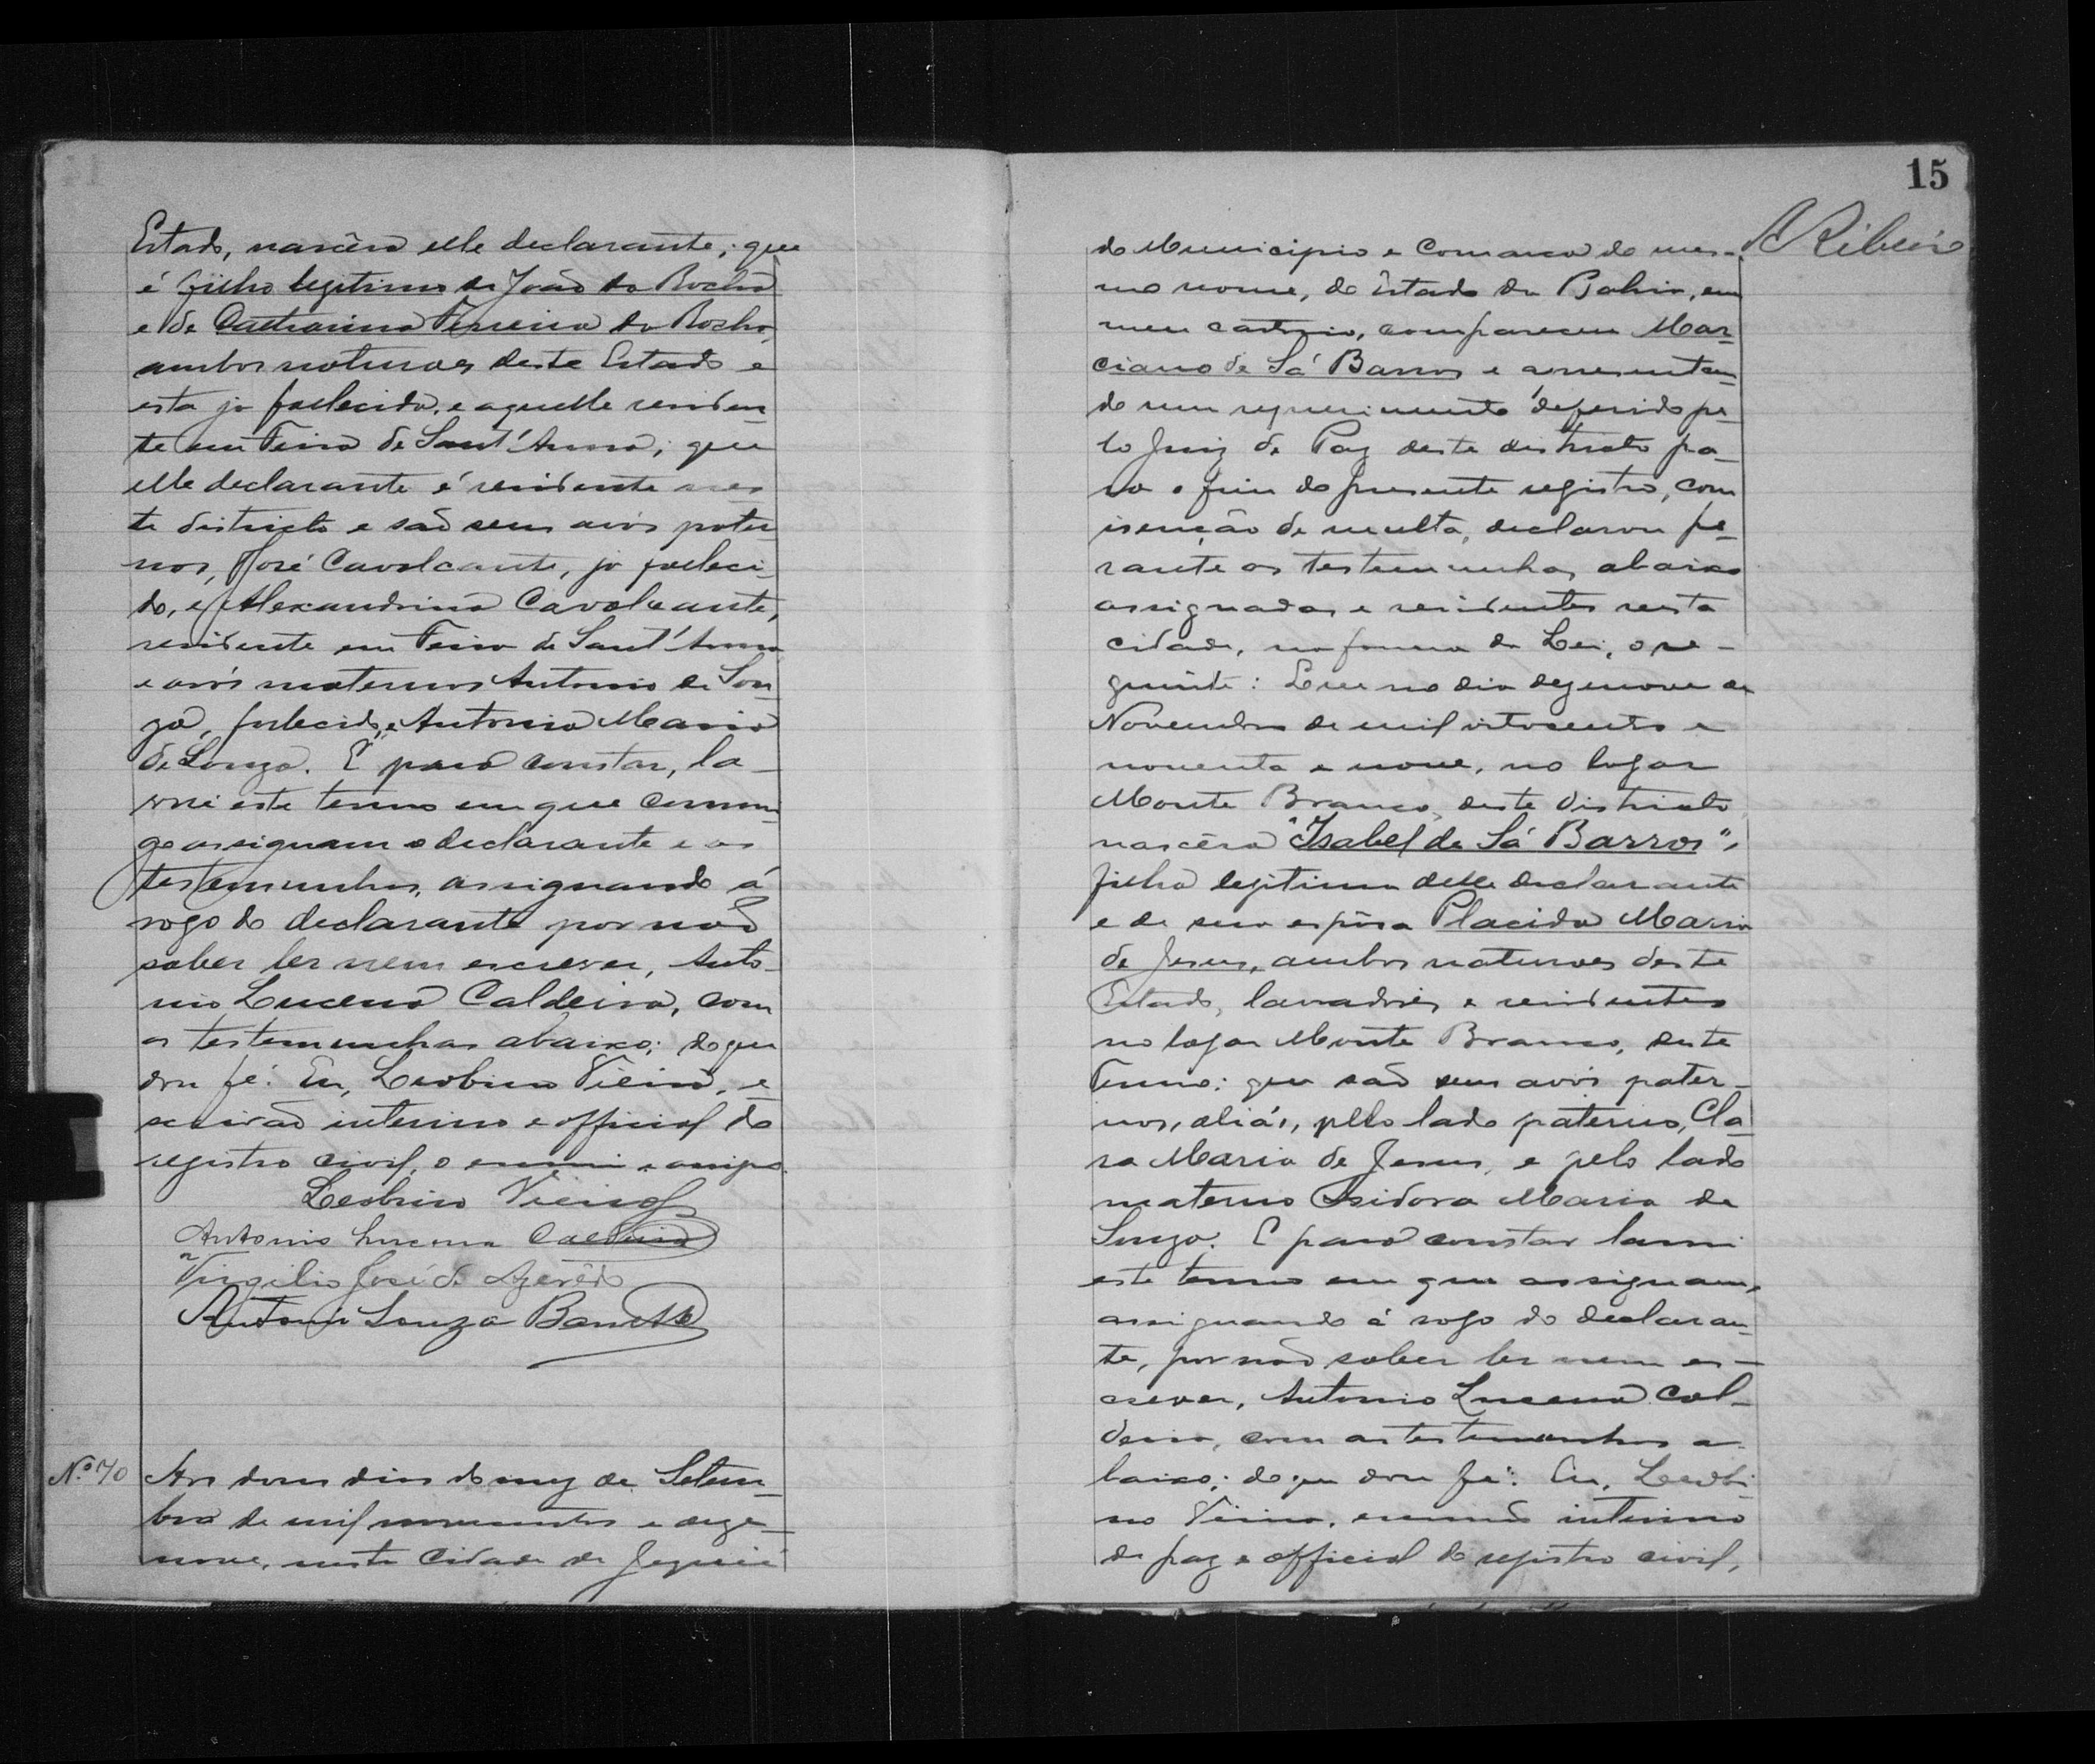 Estado, nascêra elle declarante; que
é filho legitimo de João da Rocha
e de Catharina Ferreira da Rocha,
ambos naturaes deste Estado e
esta já fallecida, e aquelle residen
te em Feira de Sant'Anna; que
elle declarante é residente nes
te districto e são seus avós pater
nos, José Cavalcante, já falleci
do, e Alexandrina Cavalcante,
residente em Feira de Sant'Anna
e avós maternos Antonio de Sou
za, fallecido, e Antonia Maria
de Souza. E para constar, la-
vrei este termo em que commi
go assignam o declarante e as
testemunhas, assignando á
rogo do declarante por não
saber ler nem escrever, Anto-
nio Lucena Caldeira, com
as testemunhas abaixo; do que
dou fé. Eu, Leobino Vieira, e
scrivão interino e official do
registro civil, o escrevi e assigno.
Leobino Vieira
Antonio Lucena Caldeira
Virgilio José de Azevêdo
Antonio Souza Barretto
Nº 70 Aos dous dias do mez de Setem
bro de mil novecentos e deze-
nove, nesta Cidade de Jequié
15
A Ribeiro
do Municipio e Comarca do mes-
mo nome, do Estado da Bahia, em
meu cartorio, compareceu Mar
ciano de Sá Barros e apresentan
do um requerimento deferido pe
lo Juiz de Paz deste districto pa-
ra o fim do presente registro, com
isenção de multa, declarou pe
rante as testemunhas abaixo
assignadas e residentes nesta
cidade, na forma da Lei, o se-
guinte: Que no dia dezenove de
Novembro de mil oitocentos e
noventa e nove, no logar
Monte Branco, deste districto,
nascêra "Isabel de Sá Barros",
filha legitima delle declarante
e de sua espôsa Placida Maria
de Jesus, ambos naturaes deste
Estado, lavradores e residentes
no logar Monte Branco, deste
Termo: que são seus avós pater-
nos, aliás, pelo lado paterno, Cla
ra Maria de Jesus, e pelo lado
materno Isidora Maria de
Souza. E para constar lavrei
este termo em que assignam,
assignando á rogo do declaran
te, por não saber ler nem es-
crever, Antonio Lucena Cal-
deira, com as testemunhas a-
baixo; do que dou fé. Eu, Leobi
no Vieira, escrivão interino
de paz e official do registro civil,